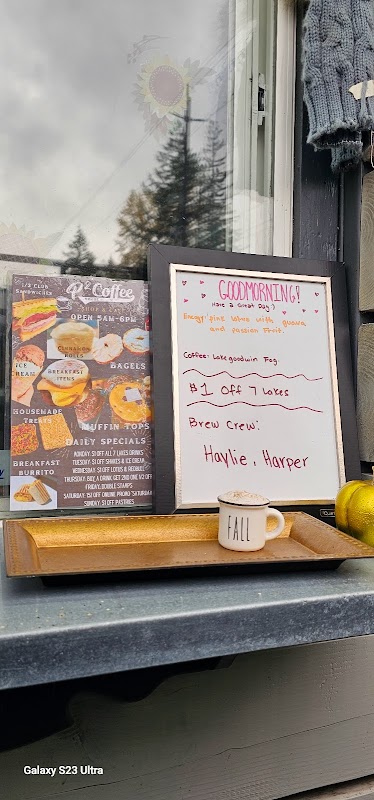 1/2 CLUB
SANDWICHES
R²Coffee
OPEN 5AM-6PM
CINNAMON
ROLLS
BAGELS
ICE
CREAM
BREAKFAST
ITEMS
HOUSEMADE
TREATS
MUFFIN TOPS
DAILY SPECIALS
BREAKFAST
BURRITO
MONDAY: $1 OFF ALL 7 LAKES DRINKS
TUESDAY: $1 OFF SHAKES & ICE CREAM
WEDNESDAY: $1 OFF LOTUS & REDBULL
THURSDAY: BUY A DRINK GET 2ND ONE 1/2 OFF
FRIDAY: DOUBLE STAMPS
SATURDAY: $2 OFF ONLINE PROMO "SATURDAY"
SUNDAY: $1 OFF PASTRIES
GOODMORNING!
Have a Great Day!
Energy: pink lotus with guava
and passion fruit.
Coffee: Lake goodwin Fog
$1 Off 7 Lakes
Brew Crew:
Haylie, Harper
FALL
Galaxy S23 Ultra